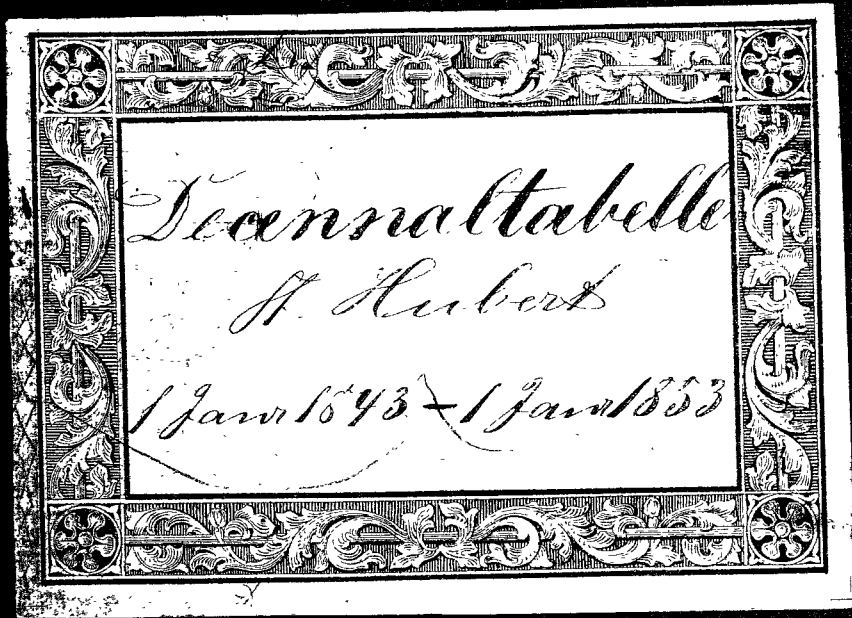 Decennaltabelle
St. Hubert
1 Janr 1843 – 1 Janr 1853